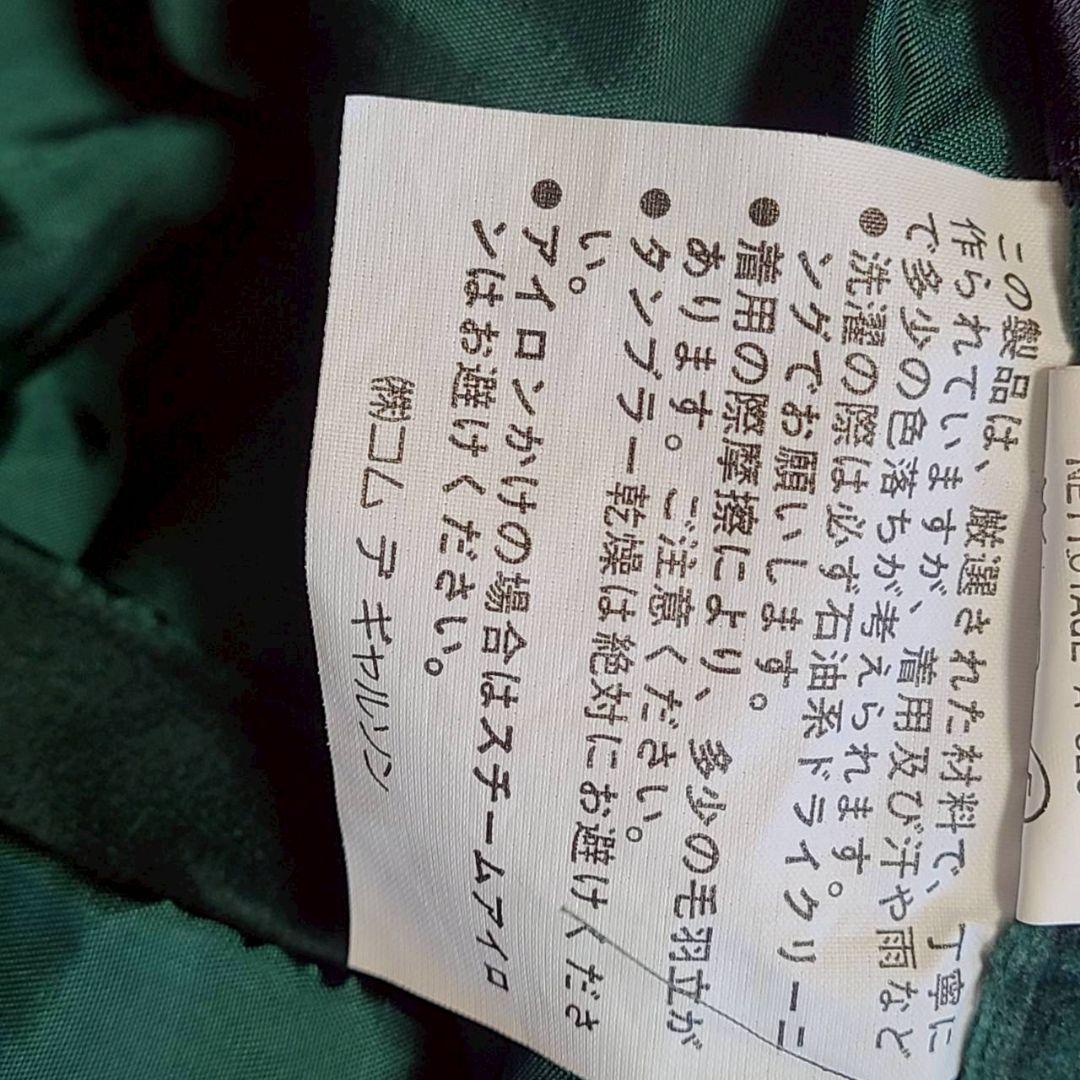 この製品は、厳選された材料で、丁寧に
作られていますが、着用及び汗や雨など
で多少の色落ちが考えられます。
●洗濯の際は必ず石油系ドライクリーニ
ングでお願いします。
●着用の際摩擦により、多少の毛羽立が
あります。ご注意ください。
●タンブラー乾燥は絶対にお避けくださ
い。
●アイロンかけの場合はスチームアイロ
ンはお避けください。
㈱コム デ ギャルソン